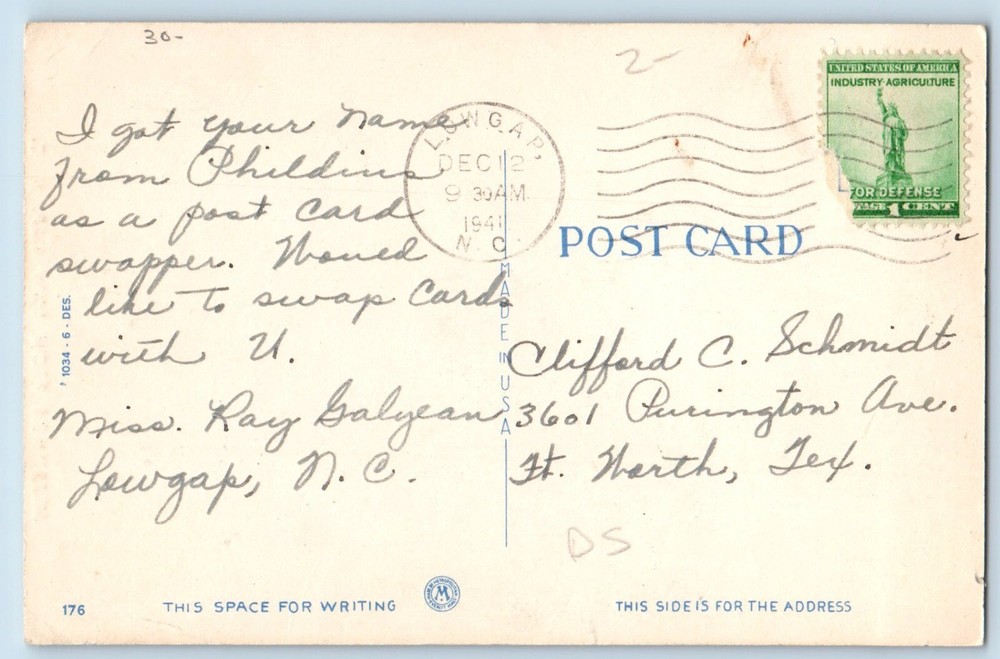 30-
2-
UNITED STATES OF AMERICA
INDUSTRY-AGRICULTURE
FOR DEFENSE
1 CENT
LOWGAP,
DEC 12
9 30 AM
1941
N. C.
POST CARD
I got your name
from Phildius
as a post card
swapper. Woued
like to swap cards
with U.
Miss. Ray Galyean
Lowgap, N. C.
1034 - 6 - DES.
MADE IN USA
Clifford C. Schmidt
3601 Purington Ave.
Ft. Worth, Tex.
DS
176
THIS SPACE FOR WRITING
M
THIS SIDE IS FOR THE ADDRESS